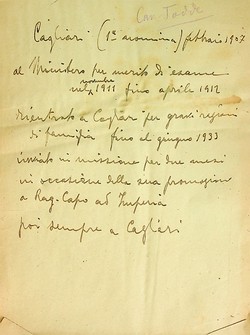 Cav. Taddei
Cagliari (1ª nomina) febbraio 1907
al Ministero per merito di esame
novembre
nel 1911 fino aprile 1912
rientrato a Cagliari per gravi ragioni
di famiglia fino al giugno 1933
inviato in missione per due mesi
in occasione della sua promozione
a Rag. Capo ad Imperia
poi sempre a Cagliari